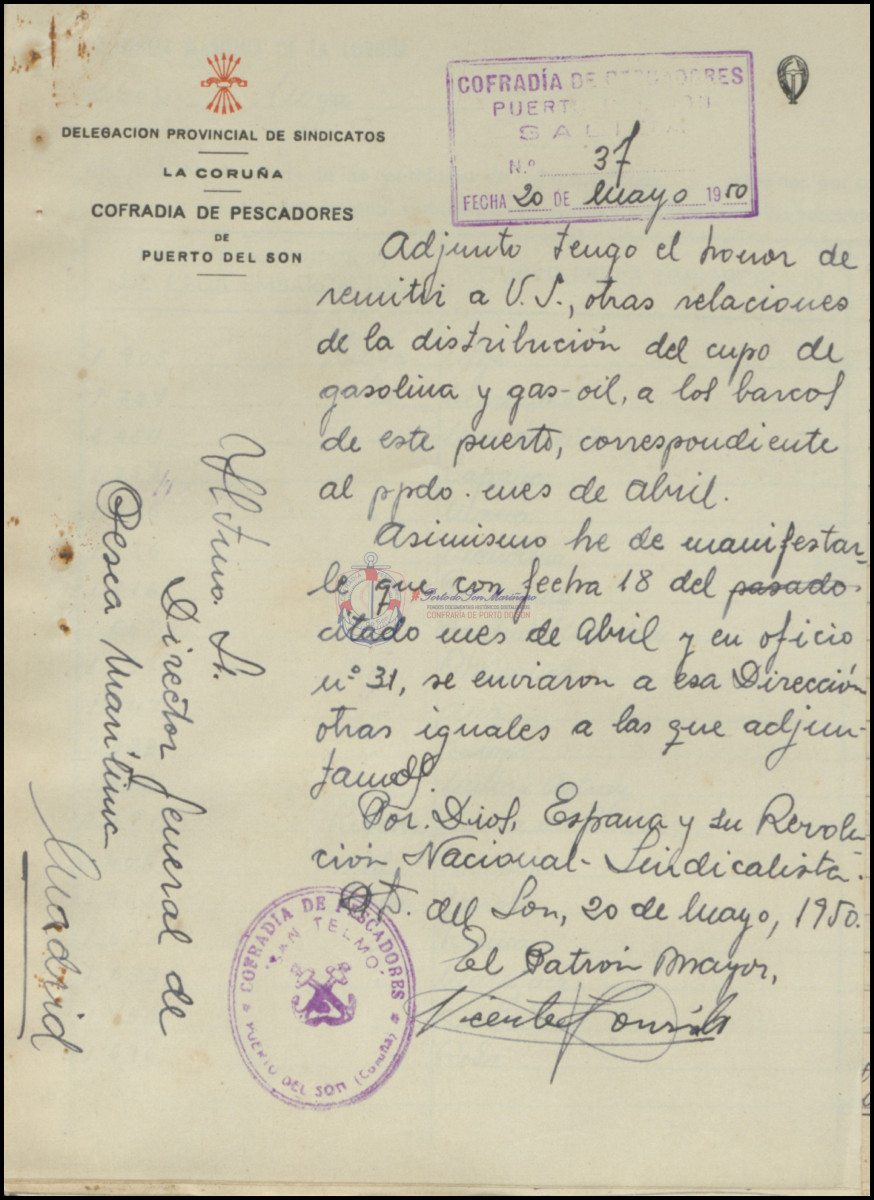 DELEGACION PROVINCIAL DE SINDICATOS
LA CORUÑA
COFRADIA DE PESCADORES
DE
PUERTO DEL SON
COFRADÍA DE PESCADORES
PUERTO SON
SALIDA
N.º 37
FECHA 20 DE Mayo 1950
Adjunto tengo el honor de
remitir a V.S., otras relaciones
de la distribución del cupo de
gasolina y gas-oil, a los barcos
de este puerto, correspondiente
al ppdo. mes de Abril.
Asimismo he de manifestar-
le que con fecha 18 del pasado
citado mes de Abril y en oficio
nº 31, se enviaron a esa Dirección
otras iguales a las que adjun-
tamos.
Por Dios, España y su Revolu-
ción Nacional-Sindicalista.
Pt. del Son, 20 de Mayo, 1950.
El Patrón Mayor,
Vicente
COFRADIA DE PESCADORES
"SAN TELMO"
PUERTO DEL SON (Coruña)
Iltmo. Sr.
Director General de
Pesca Marítima
Madrid
Porto do Son Mariñeiro
FONDOS DOCUMENTAIS HISTÓRICOS DIXITALIZADOS
CONFRARÍA DE PORTO DO SON